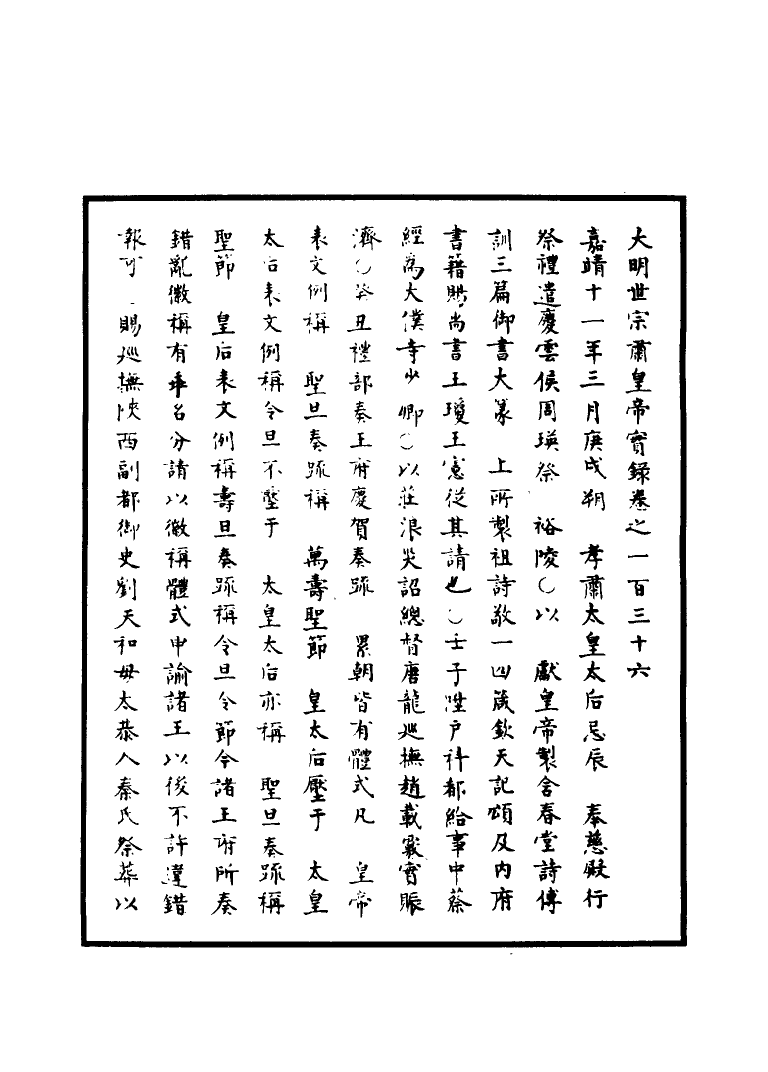 大明世宗肅皇帝實錄卷之一百三十六
嘉靖十一年三月庚戌朔　孝肅太皇太后忌辰　奉慈殿行
祭禮遣慶雲侯周瑛祭　裕陵○以　獻皇帝製含春堂詩傳
訓三篇御書大篆　上所製祖詩敬一四箴欽天記頌及內府
書籍賜尚書王瓊王憲從其請也○壬子陞戶科都給事中蔡
經為大僕寺少卿○以莊浪災詔總督唐龍巡撫趙載覈實賑
濟○癸丑禮部奏王府慶賀奏䟽　累朝皆有體式凡　皇帝
表文例稱　聖旦奏䟽稱　萬壽聖節　皇太后壓于　太皇
太后表文例稱令旦不壓于　太皇太后亦稱　聖旦奏䟽稱
聖節　皇后表文例稱壽旦奏䟽稱令旦令節今諸王府所奏
錯亂徽稱有乖名分請以徽稱體式申諭諸王以後不許違錯
報可　賜巡撫陝西副都御史劉天和母太恭人秦氏祭葬以